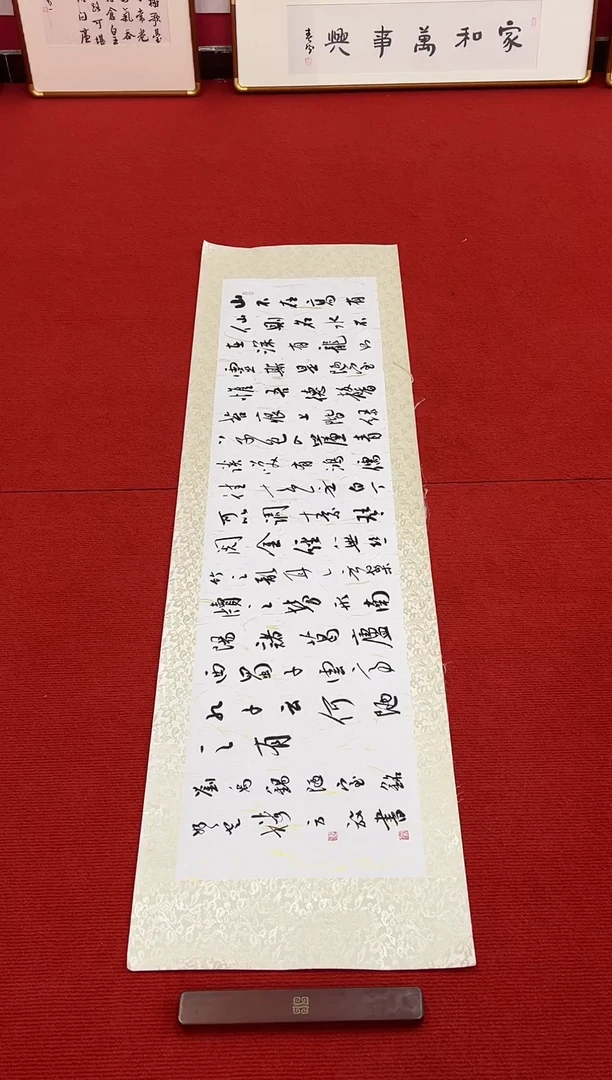 家和萬事興
山不在高有
仙則名水不
在深有龍則
靈斯是陋室
惟吾德馨
苔痕上階綠
草色入簾青
談笑有鴻儒
往来無白丁
可以調素琴
閱金經無絲
竹之亂耳無案
牘之勞形南
陽諸葛廬
西蜀子雲亭
孔子云何陋
之有
劉禹錫陋室銘
書